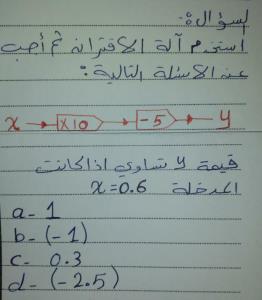 السؤال:
استخدم آلة الاقتران ثم أجب
عن الاسئلة التالية:
x → ×10 → -5 → y
قيمة y تساوي اذا كانت
المدخلة x=0.6
a- 1
b- (-1)
c- 0.3
d- (-2.5)